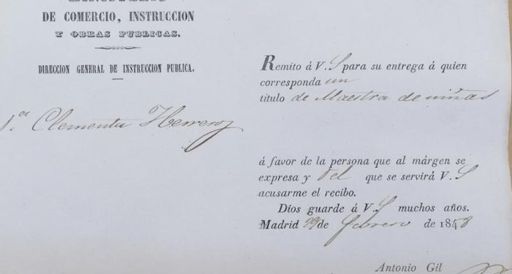 DE COMERCIO, INSTRUCCION
Y OBRAS PUBLICAS.
DIRECCION GENERAL DE INSTRUCCION PUBLICA.
Clementa Herrero
Remito á V. S para su entrega á quien
corresponda un
título de Maestra de niñas
á favor de la persona que al márgen se
expresa y del que se servirá V. S
acusarme el recibo.
Dios guarde á V. S muchos años.
Madrid de febrero de 18
Antonio Gil